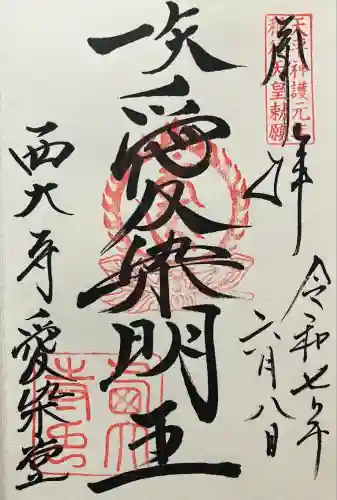 天平神護元年
称徳天皇勅願
奉拝
令和七年
六月八日
一矢愛染明王
西大寺愛染堂